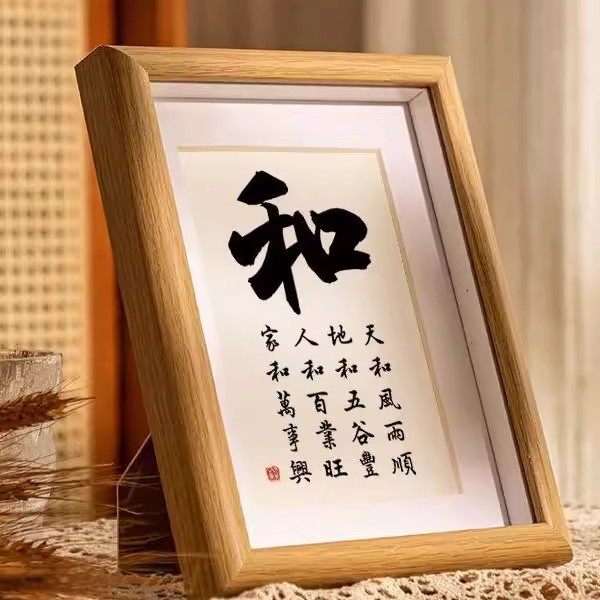 和
天和風雨順
地和五谷豐
人和百業旺
家和萬事興